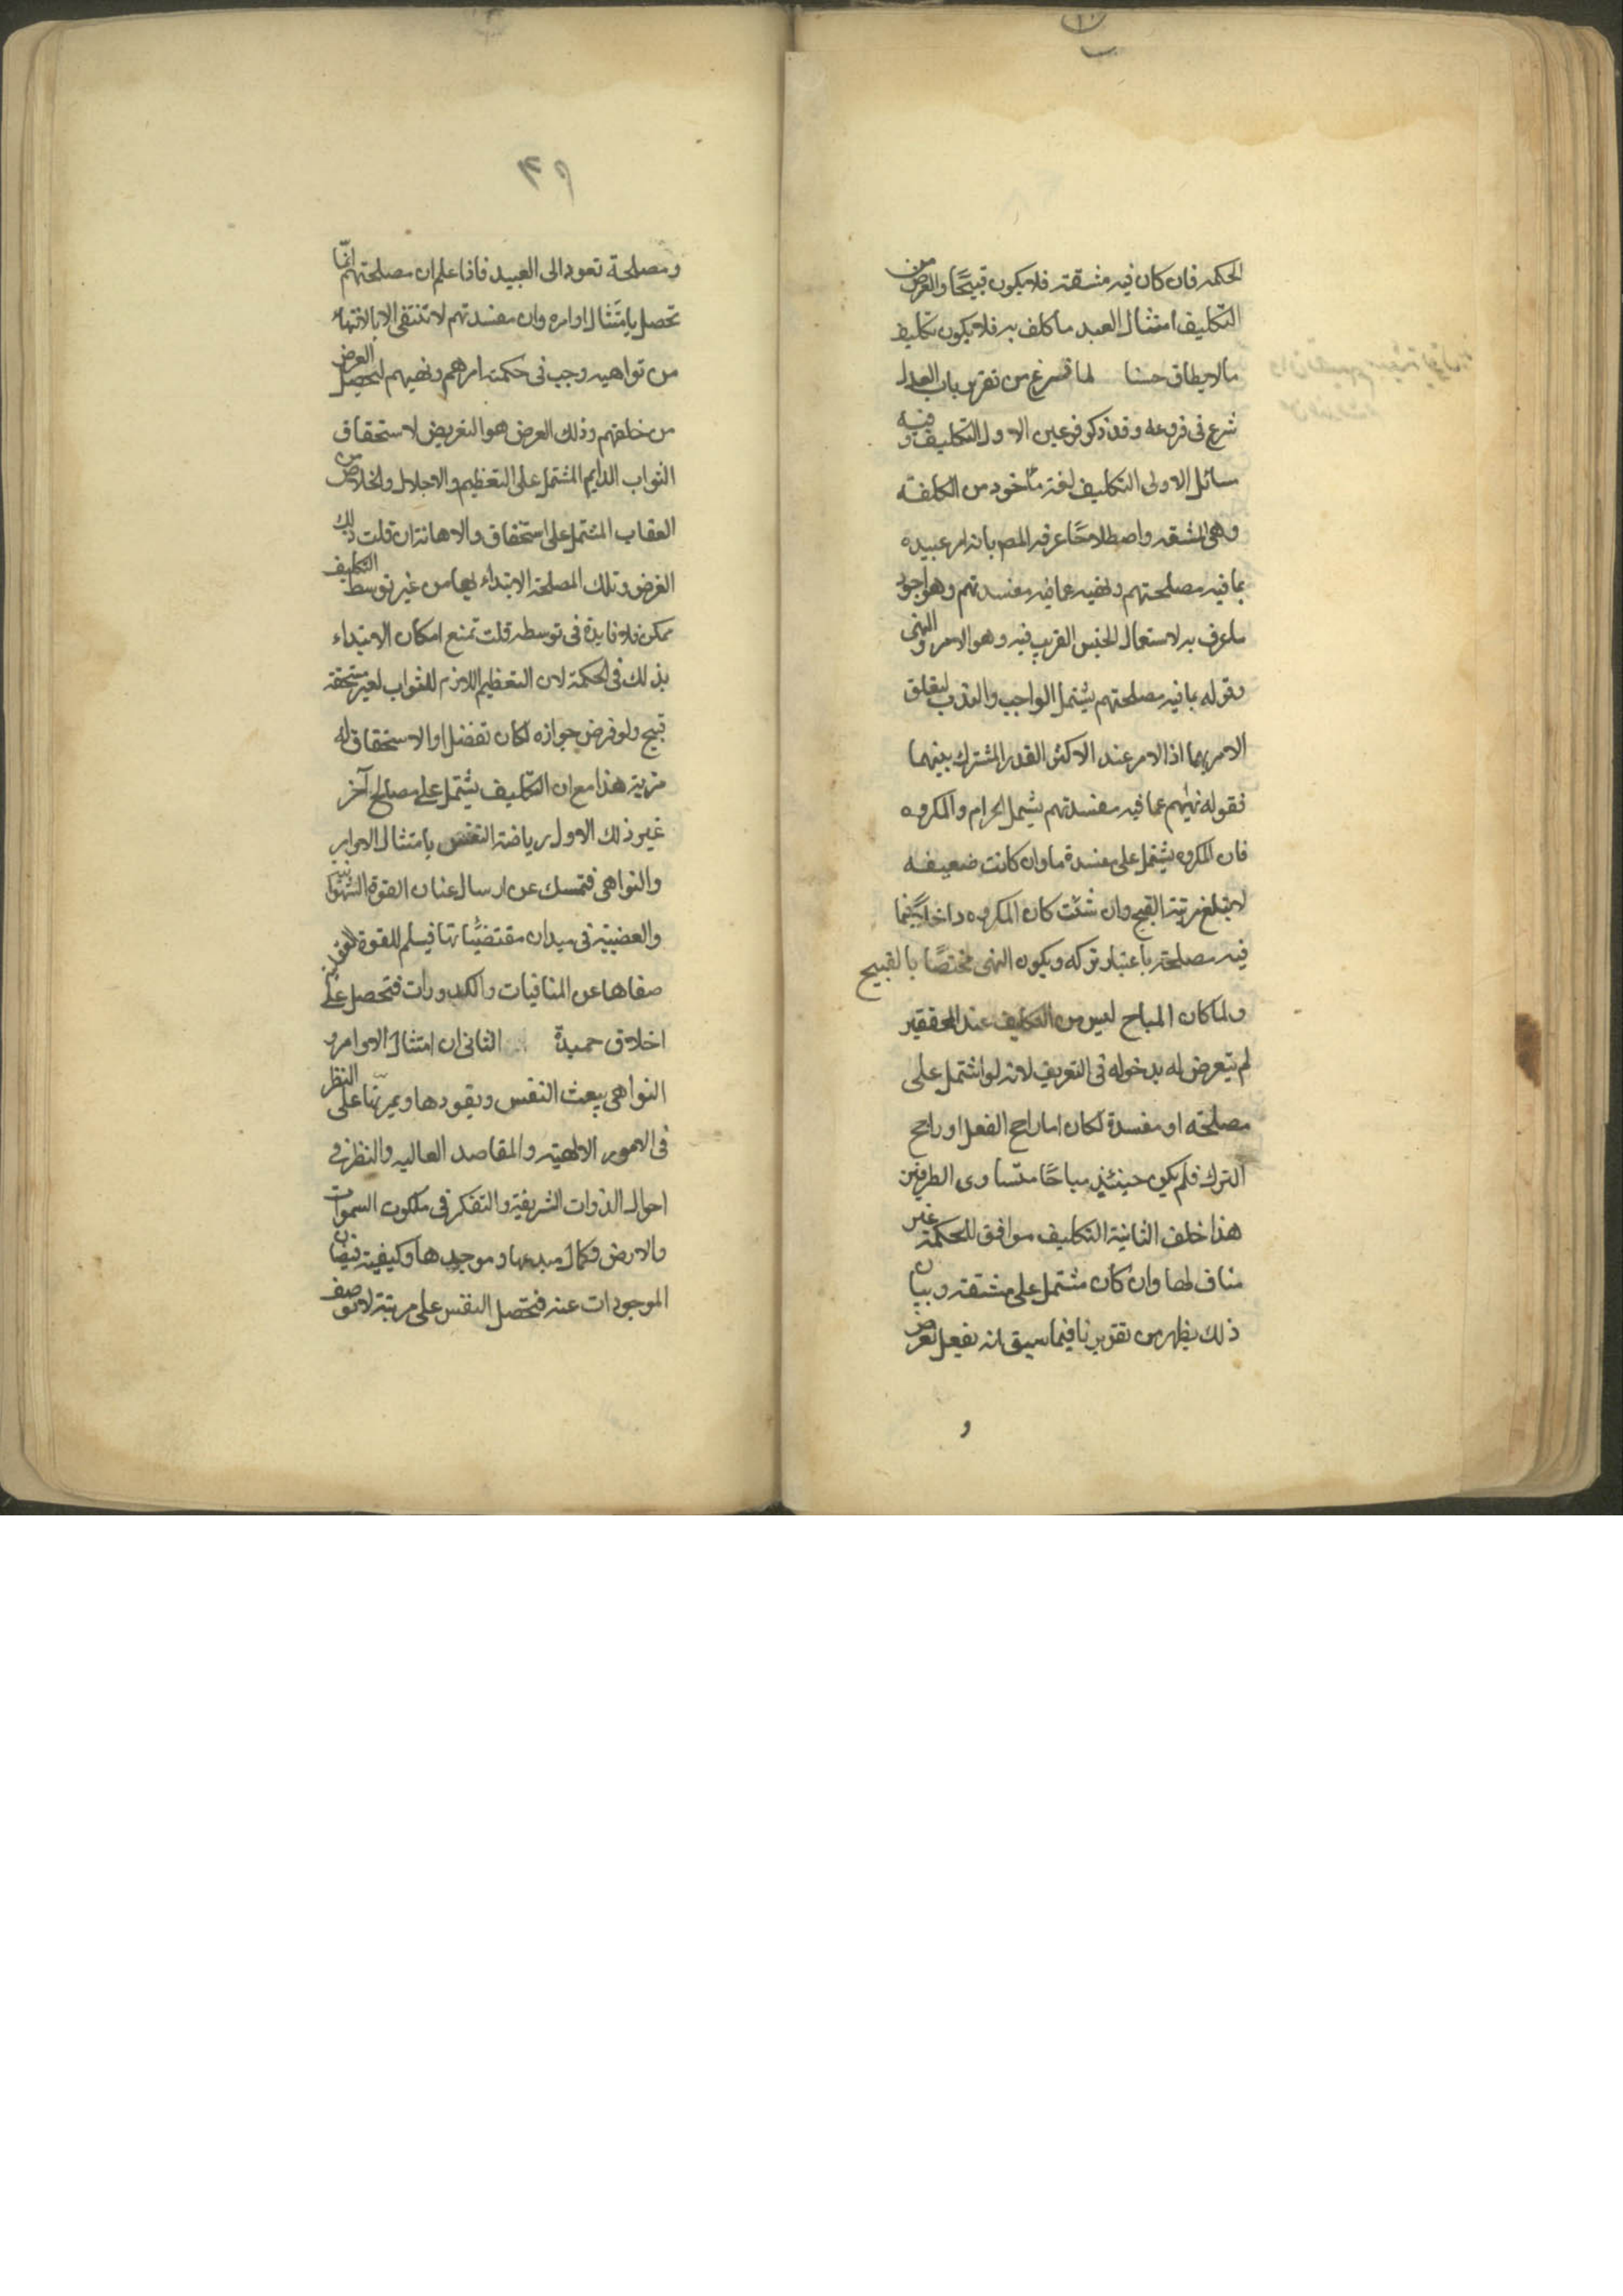 الحكمه فان كان فيه مشقة فلا يكون قبيحًا والغرض من
التكليف امتثال العبد ما كلف به فلا يكون تكليف
مالا يطاق حسنا لما فرغ من تقرير باب العدل
شرع في فروعه وقد ذكر فرعين الاول التكليف وفيه
مسائل الاولى التكليف لغة مأخوذ من الكلفة
وهي المشقة واصطلاحًا عرفه المصر بانه امر عبيده
بما فيه مصلحتهم ونهيه عما فيه مفسدتهم وهو اجود
ما عرف به لاستعمال الجنس القريب فيه وهو الامر والنهي
وقوله بما فيه مصلحتهم يشمل الواجب والندب لتعلق
الامر بهما اذ الامر عند الاكثر القدر المشترك بينهما
فقوله نهيهم عما فيه مفسدتهم يشمل الحرام والمكروه
فان المكروه يشتمل على مفسدة ما وان كانت ضعيفه
لا يبلغ مرتبة القبيح وان شئت كان المكروه داخلاً فيما
فيه مصلحة باعتبار تركه ويكون النهي مختصًا بالقبيح
ولما كان المباح ليس من التكليف عند المحققين
لم يتعرض له بدخوله في التعريف لانه لو اشتمل على
مصلحته او مفسدة لكان اما راجح الفعل او راجح
الترك فلم يكن حينئذ مباحًا متساوى الطرفين
هذا خلف الثانية التكليف موافق للحكمة غير
مناف لها وان كان مشتمل على مشقة وبيان
ذلك يظهر من تقريرنا فيما سبق انه يفعل لغرض
و
٣٩
ومصلحة تعود الى العبيد فاذا علم ان مصلحتهم انما
تحصل بامتثال اوامره وان مفسدتهم لا تنتفي الا بالانتهاء
من نواهيه وجب في حكمته امرهم ونهيهم لتحصيل الغرض
من خلقهم وذلك الغرض هو التعريض لاستحقاق
الثواب الدايم المشتمل على التعظيم والاجلال والخلاص من
العقاب المشتمل على استحقاق والاهانة ان قلت ذلك
الغرض وتلك المصلحة الابتداء بها من غير توسط التكليف
ممكن فلا فايدة في توسطه قلت نمنع امكان الابتداء
بذلك في الحكمة لان التعظيم اللازم للثواب لغير مستحقه
قبيح ولو فرض جوازه لكان تفضلا والاستحقاق له
مزية هذا مع ان التكليف يشتمل على مصالح آخر
غير ذلك الاول رياضة النفس بامتثال الاوامر
والنواهي فتمسك عن ارسال عنان القوة الشهوانية
والغضبية في ميدان مقتضياتها فيسلم للقوة العقلية
صفاها عن المنافيات والكدورات فتحصل على
اخلاق حميدة الثاني ان امتثال الاوامر و
النواهي يبعث النفس ويقودها ويمرنها على النظر
في الامور الالهية والمقاصد العاليه والنظر في
احوال الذوات الشريفة والتفكر في ملكوت السموات
والارض وكمال مبدعها وموجدها وكيفية فيضان
الموجودات عنه فتحصل النفس على مرتبة لا توصف